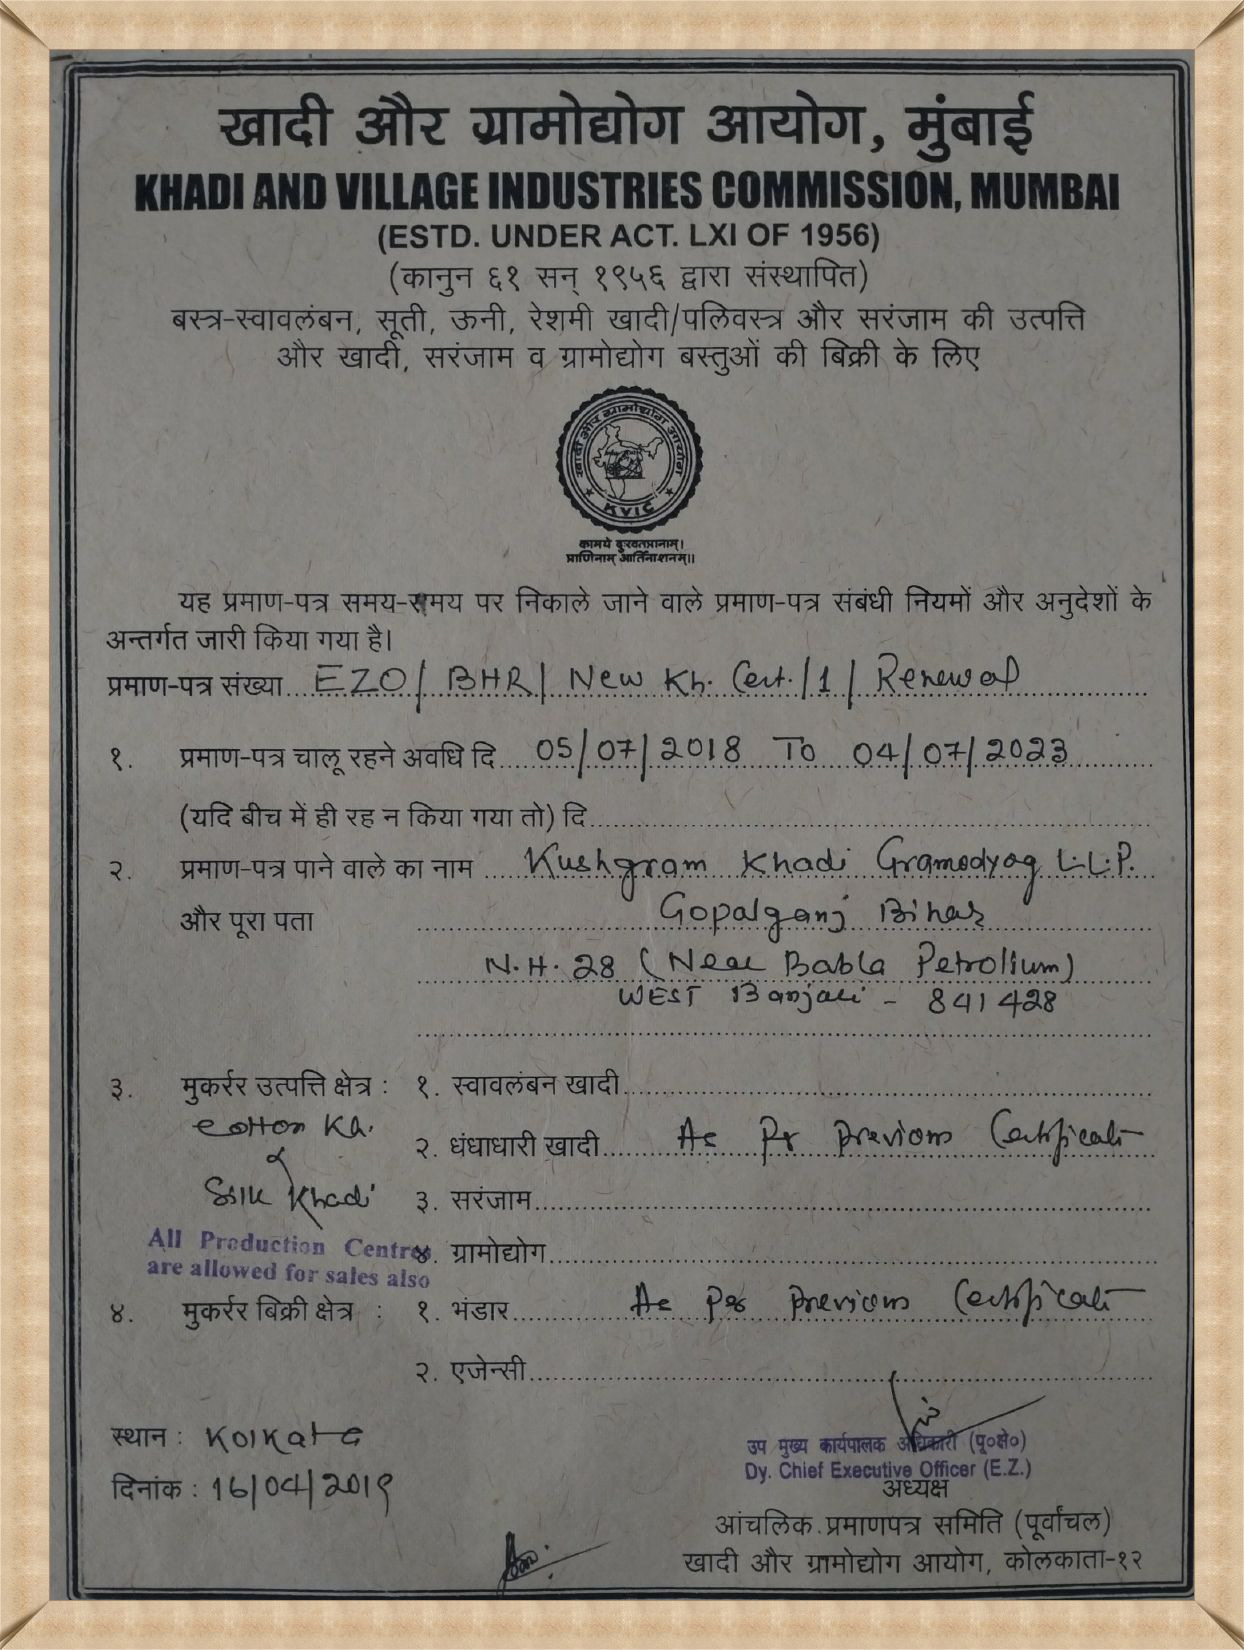 खादी और ग्रामोद्योग आयोग, मुंबाई
KHADI AND VILLAGE INDUSTRIES COMMISSION, MUMBAI
(ESTD. UNDER ACT. LXI OF 1956)
(कानुन ६१ सन् १९५६ द्वारा संस्थापित)
बस्त्र-स्वावलंबन, सूती, ऊनी, रेशमी खादी/पलिवस्त्र और सरंजाम की उत्पत्ति
और खादी, सरंजाम व ग्रामोद्योग बस्तुओं की बिक्री के लिए
खादी और ग्रामोद्योग आयोग
KVIC
कामये दुःखतप्तानाम्।
प्राणिनाम् आर्तिनाशनम्॥
यह प्रमाण-पत्र समय-समय पर निकाले जाने वाले प्रमाण-पत्र संबंधी नियमों और अनुदेशों के
अन्तर्गत जारी किया गया है।
प्रमाण-पत्र संख्या EZO/ BHR/ New Kh. Cert./1/ Renewal
१. प्रमाण-पत्र चालू रहने अवधि दि 05/07/2018 TO 04/07/2023
(यदि बीच में ही रह न किया गया तो) दि
२. प्रमाण-पत्र पाने वाले का नाम Kushgram Khadi Gramodyog L.L.P.
और पूरा पता Gopalganj Bihar
N.H. 28 (Near Babla Petrolium)
WEST Banjari - 841428
३. मुकर्रर उत्पत्ति क्षेत्र : १. स्वावलंबन खादी
Cotton Kh.
२. धंधाधारी खादी As Pr Previous Certificate
&
Silk Khadi ३. सरंजाम
All Production Centres ४. ग्रामोद्योग
are allowed for sales also
४. मुकर्रर बिक्री क्षेत्र : १. भंडार As Per Previous Certificate
२. एजेन्सी
स्थान : Kolkata
उप मुख्य कार्यपालक अधिकारी (पू०क्षे०)
Dy. Chief Executive Officer (E.Z.)
दिनांक : 16/04/2019 अध्यक्ष
आंचलिक प्रमाणपत्र समिति (पूर्वांचल)
खादी और ग्रामोद्योग आयोग, कोलकाता-१२